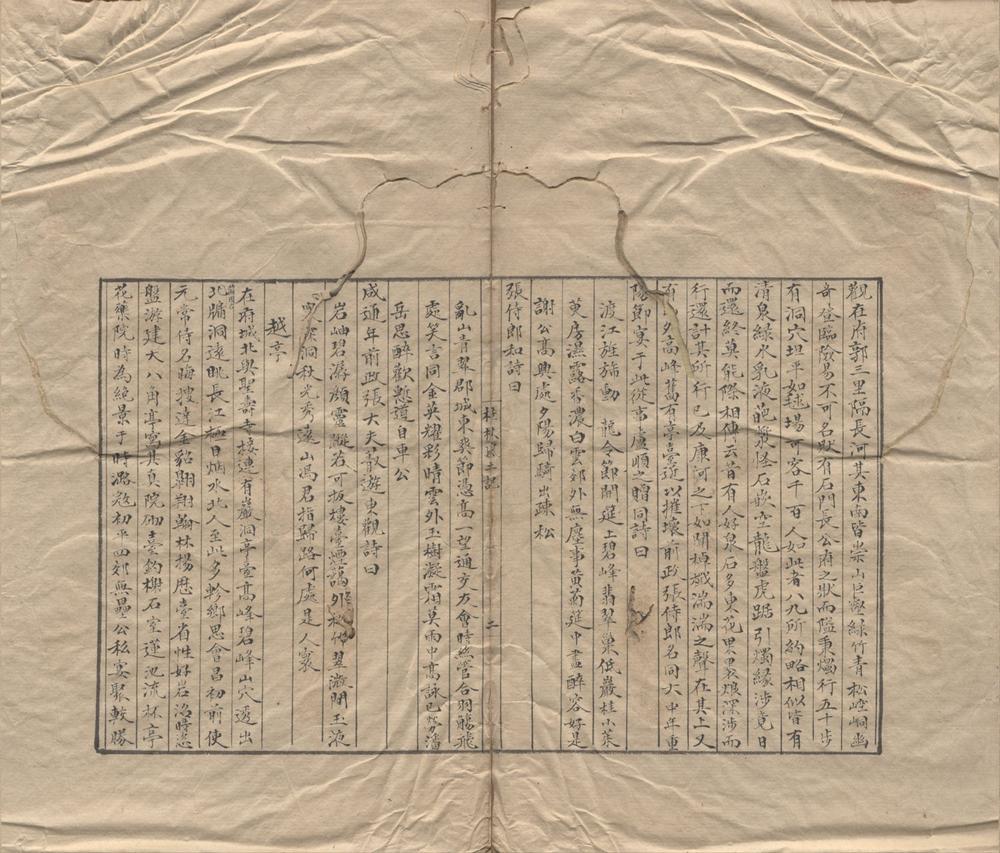 觀在府郭三里隔長河其東南皆崇山巨壑綠竹青松崆峒幽
奇登臨險易不可名狀有石門長公府之狀而隘秉燭行五十步
有洞穴坦平如毬場可容千百人如此者八九所約略相似皆有
清泉綠水乳液葩漿怪石嵌空龍盤虎踞引燭緣涉竟日
而還終莫能際相傳云昔有人好泉石多束花果裹粮深涉而
行還計其所行已及康河之下如聞棹檝濡濡之聲在其上又
有夕高峰舊有亭臺近以摧壞前政張侍郎名固大中年重
陽節宴于此從事盧順之贈固詩曰
渡江旌旆動龍令節開筵上碧峰翡翠巢低巖桂小茱
萸房濕露芬濃白雲郊外無塵事黃菊筵中盡醉容好是
謝公高興處夕陽歸騎出疎松
張侍郎和詩曰
桂林風土記 二
亂山青翠郡城東爽節憑高一望通交友會時絲管合羽觴飛
處笑言同金英耀彩晴雲外玉樹凝霜莫雨中高詠已勞潘
岳思醉歡慙道自車公
咸通年前政張大夫歡遊東觀詩曰
岩岫碧潺湲靈蹤若可扳樓臺煙靄外松竹翠微閒玉液
寒深洞秋光秀遠山馮君指歸路何處是人寰
越亭
在府城北與聖壽寺接連有巖洞亭臺高峰碧峰山穴透出
北牖洞遠眺長江極目烟水北人至此多軫鄉思會昌初前使
元常侍名晦搜達金貂翺翔翰林揚歷臺省性好岩沼時恣
盤遊建大八角亭寫其真院砌臺釣榭石室蓮池流杯亭
花藥院時為絕景于時潞寇初平四郊無壘公私宴聚較勝